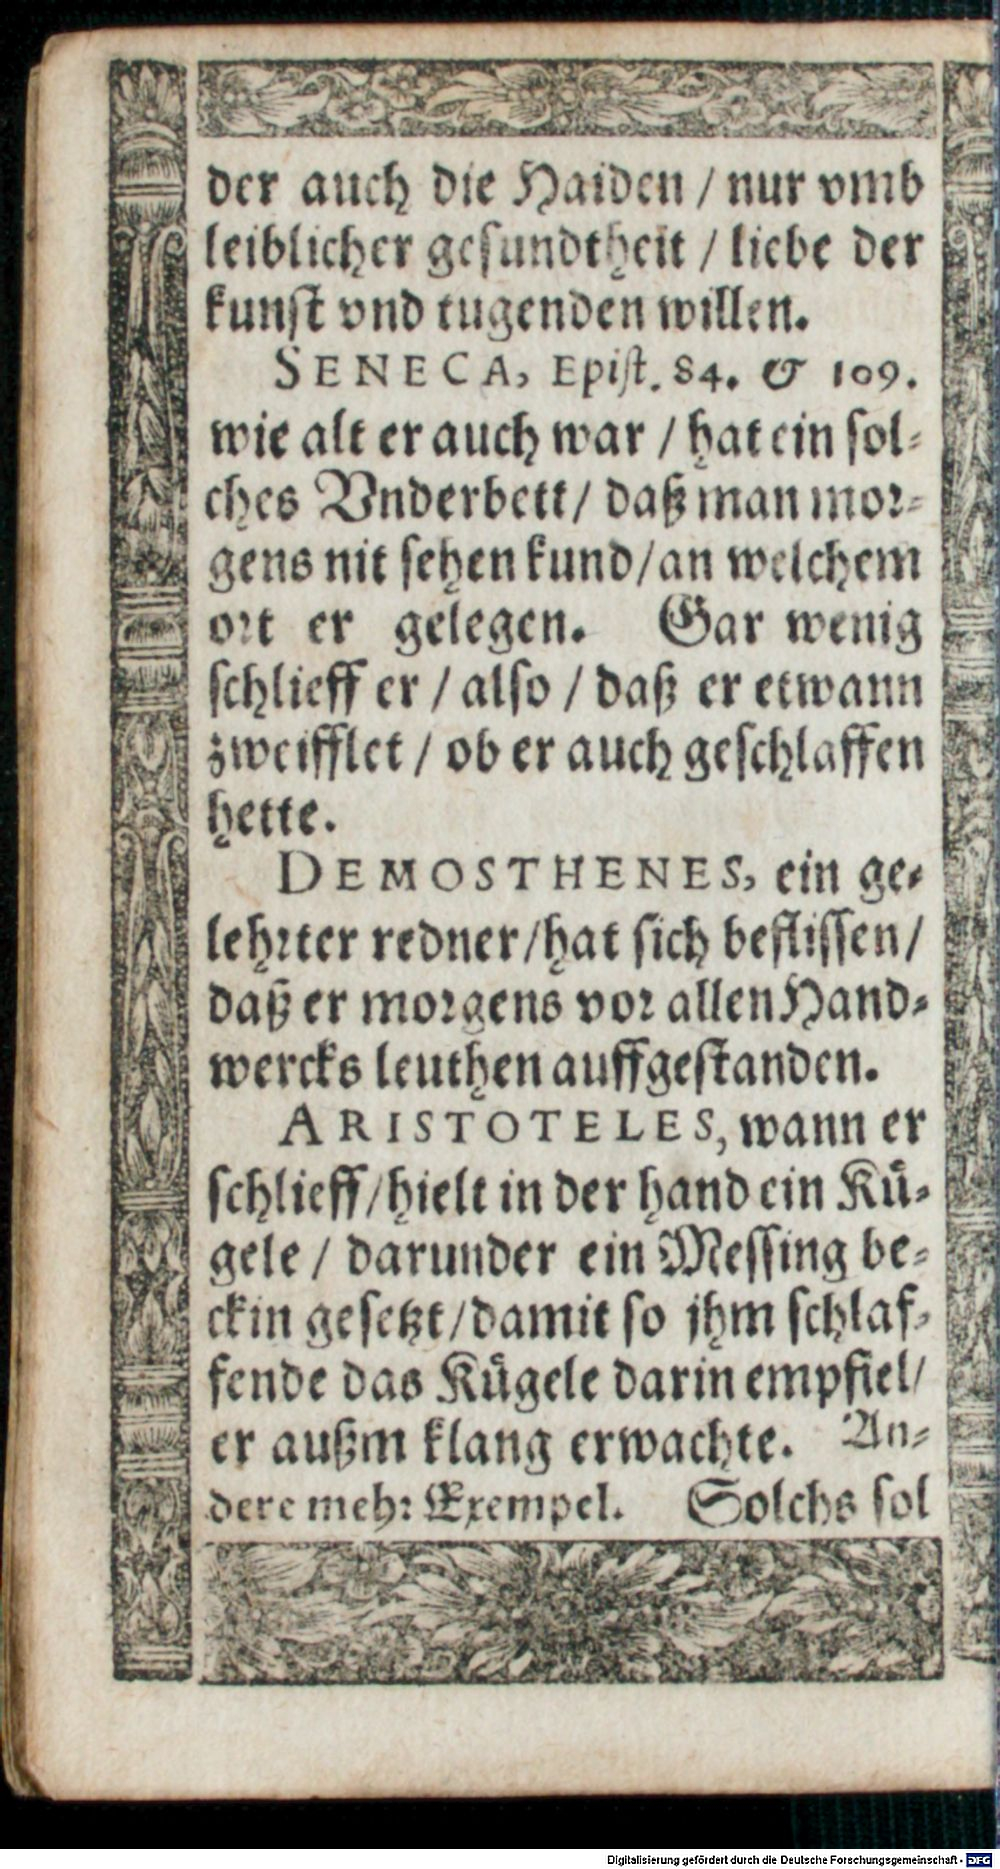 der auch die Haiden / nur vmb
leiblicher gesundtheit / liebe der
kunst vnd tugenden willen.
SENECA, Epist. 84. & 109.
wie alt er auch war / hat ein sol-
ches Vnderbett / daß man mor-
gens nit sehen kund / an welchem
ort er gelegen. Gar wenig
schlieff er / also / daß er etwann
zweifflet / ob er auch geschlaffen
hette.
DEMOSTHENES, ein ge-
lehrter redner / hat sich beflissen /
daß er morgens vor allen Hand-
wercks leuthen auffgestanden.
ARISTOTELES, wann er
schlieff / hielt in der hand ein Kü-
gele / darunder ein Messing be-
ckin gesetzt / damit so jhm schlaf-
fende das Kügele darin empfiel /
er außm klang erwachte. An-
dere mehr Exempel. Solchs sol
Digitalisierung gefördert durch die Deutsche Forschungsgemeinschaft - DFG